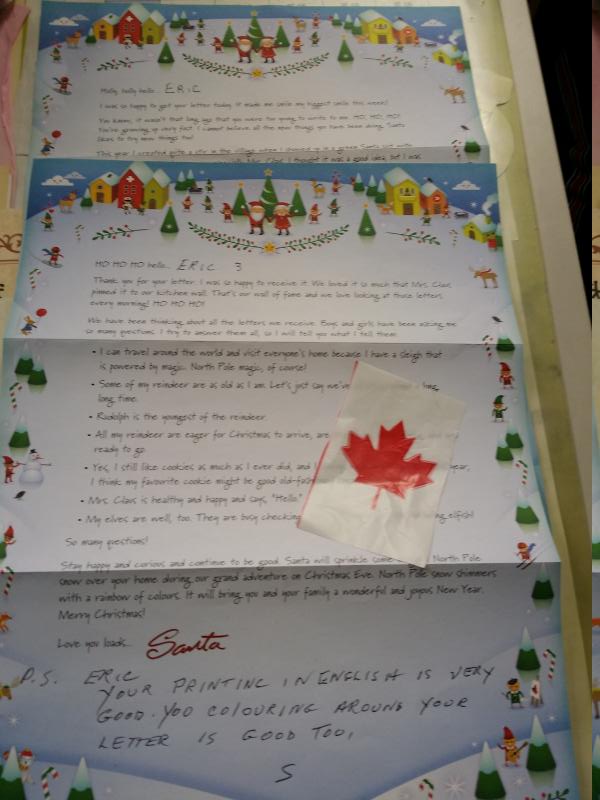 Holly, holly hello... ERIC
I was so happy to get your letter today. It made me smile my biggest smile this week!
You know, it wasn't that long ago that you were too young to write to me. HO, HO, HO!
You're growing up very fast. I cannot believe all the new things you have been doing. Santa
likes to try new things too!
This year I created quite a stir in the village when I showed up in a green Santa suit with
I thought it was a good idea, but I was
HO HO HO hello... ERIC 3
Thank you for your letter. I was so happy to receive it. We loved it so much that Mrs. Claus
pinned it to our kitchen wall. That's our wall of fame and we love looking at those letters
every morning! HO HO HO!
We have been thinking about all the letters we receive. Boys and girls have been asking me
so many questions. I try to answer them all, so I will tell you what I tell them.
• I can travel around the world and visit everyone's home because I have a sleigh that
is powered by magic. North Pole magic, of course!
• Some of my reindeer are as old as I am. Let's just say we've long,
long time.
• Rudolph is the youngest of the reindeer.
• All my reindeer are eager for Christmas to arrive, are
ready to go.
• Yes, I still like cookies as much as I ever did, and year,
I think my favourite cookie might be good old-fash
• Mrs. Claus is healthy and happy and says, "Hello."
• My elves are well, too. They are busy checking being elfish!
So many questions!
Stay happy and curious and continue to be good. Santa will sprinkle some North Pole
snow over your home during our grand adventure on Christmas Eve. North Pole snow shimmers
with a rainbow of colours. It will bring you and your family a wonderful and joyous New Year.
Merry Christmas!
Love you loads... Santa
P.S. ERIC
YOUR PRINTING IN ENGLISH IS VERY
GOOD. YOO COLOURING AROUND YOUR
LETTER IS GOOD TOO,
S